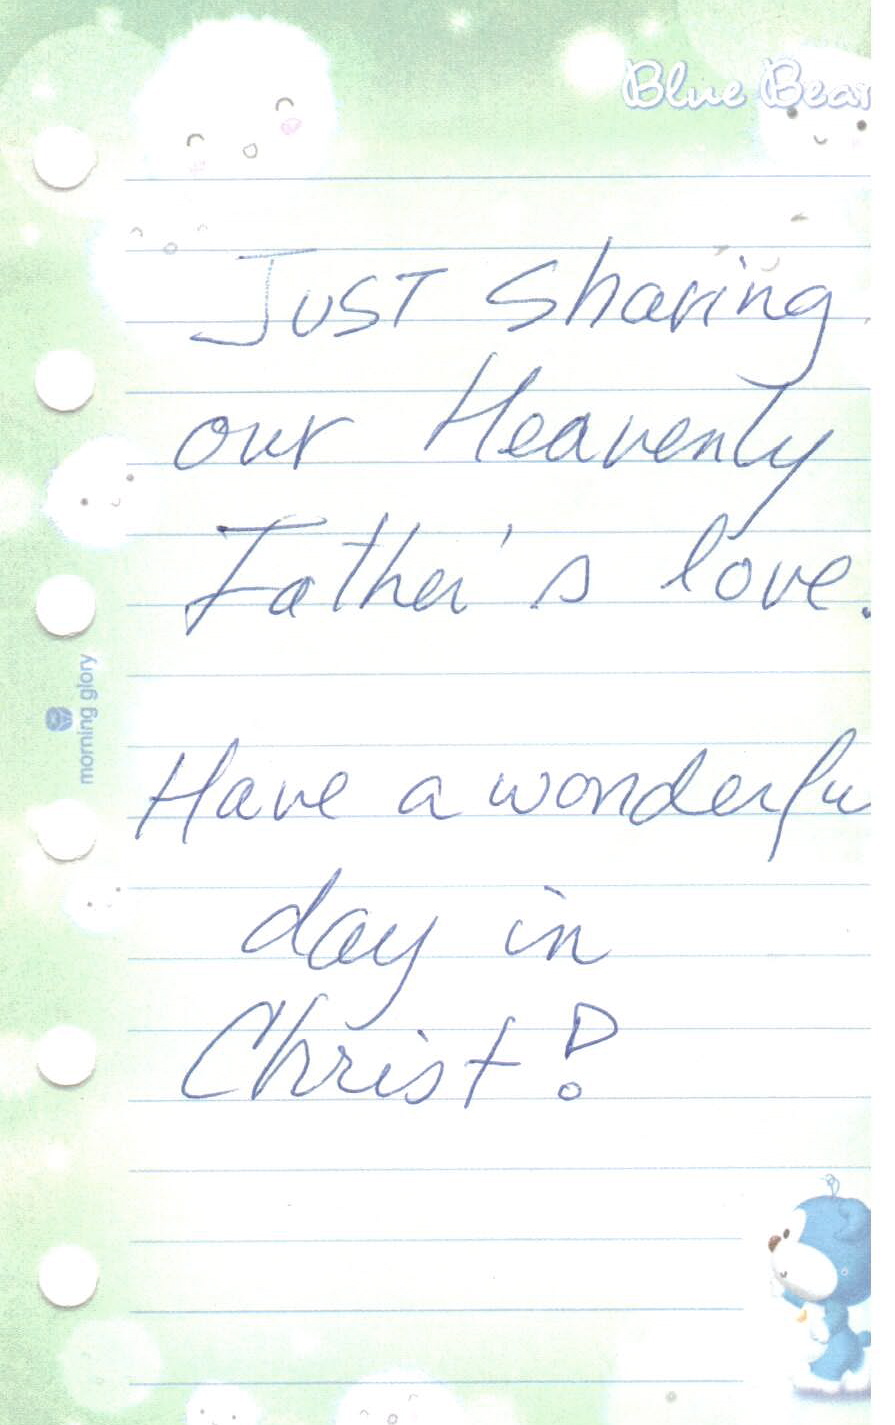 Blue Bear
Just sharing
our Heavenly
Father's love.
morning glory
Have a wonderfu
day in
Christ!